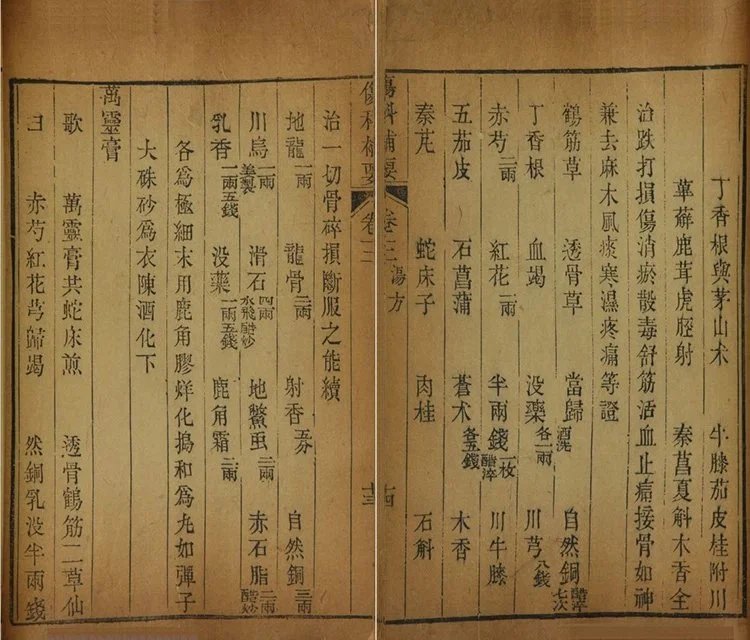 丁香根與茅山朮　牛膝茄皮桂附川
萆薢鹿茸虎脛射　秦菖夏斛木香全
治跌打損傷消瘀散毒舒筋活血止痛接骨如神
兼去麻木風痰寒濕疼痛等證
鶴筋草　透骨草　當歸酒洗　自然銅醋淬七次
丁香根　血竭　没藥各一兩　川芎八錢
赤芍二兩　紅花一兩　半兩錢一枚醋淬　川牛膝
五茄皮　石菖蒲　蒼朮各五錢　木香
秦芃　蛇床子　肉桂　石斛
傷科補要　卷三　湯方　十四
傷科補要　卷三　十三
治一切骨碎損斷服之能續
地龍一兩　龍骨二兩　射香五分　自然銅三兩
川烏一兩姜製　滑石四兩水飛醋炒　地鱉虫二兩　赤石脂二兩醋炒
乳香一兩五錢　没藥一兩五錢　鹿角霜二兩
各為極細末用鹿角膠烊化搗和為丸如彈子
大硃砂為衣陳酒化下
萬靈膏
歌　萬靈膏共蛇床煎　透骨鶴筋二草仙
曰　赤芍紅花芎歸竭　然銅乳没半兩錢